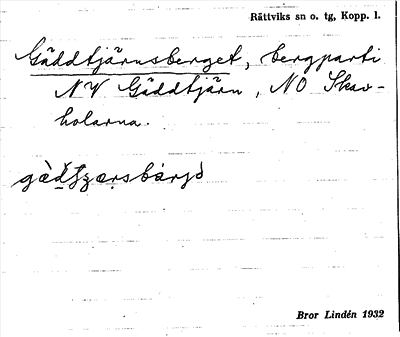 Rättviks sn o. tg, Kopp. l.
Gäddtjärnsberget, bergparti
NV Gäddtjärn, NO Skav-
holarna.
Bror Lindén 1932